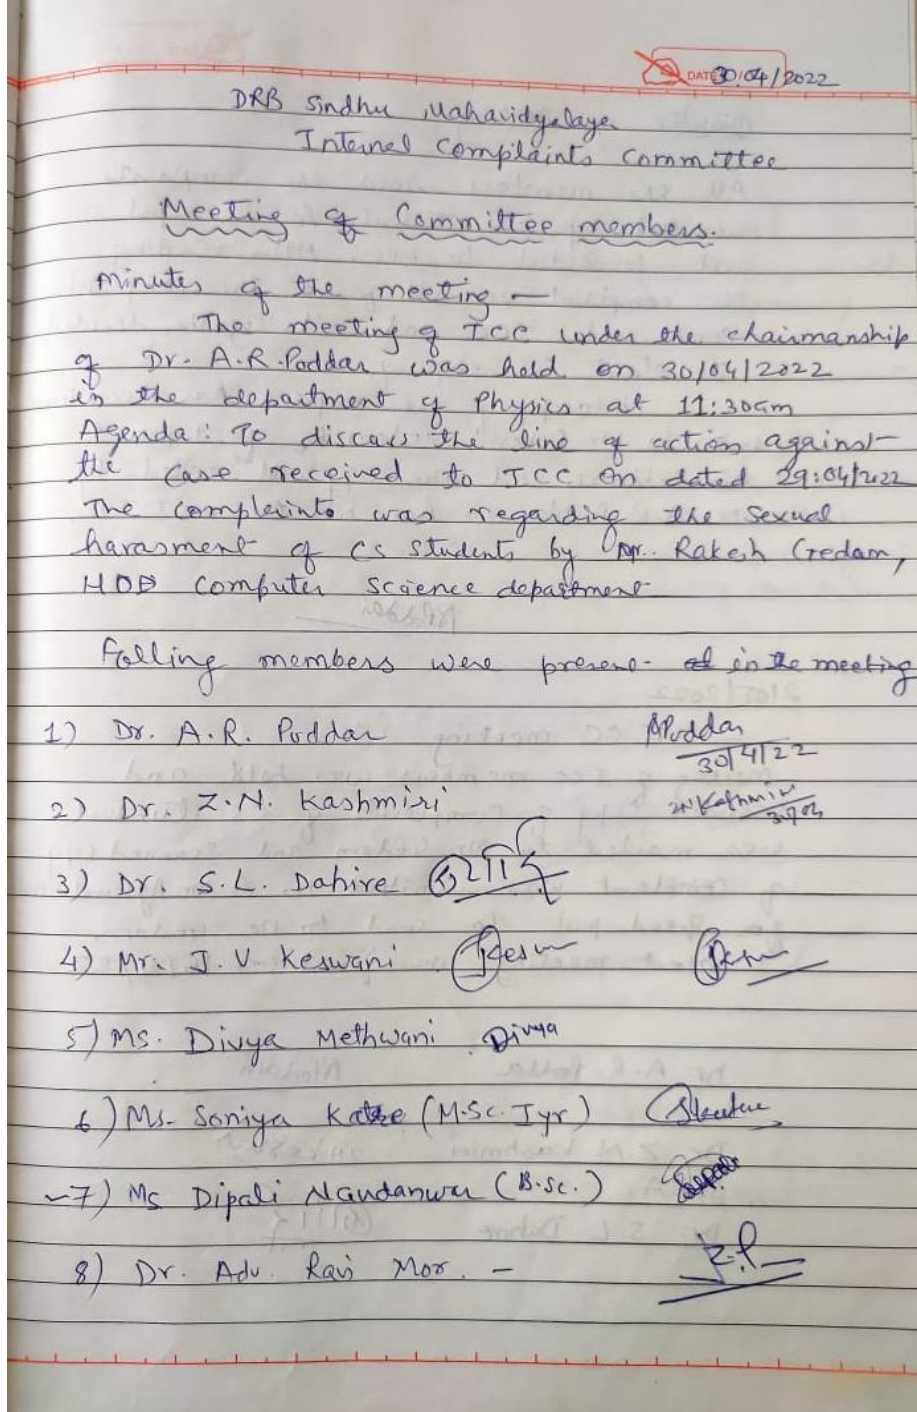 DATE 30/04/2022
DRB Sindhu Mahavidyalaya
Internal Complaints Committee
Meeting of Committee members.
Minutes of the meeting —
The meeting of ICC under the chairmanship
of Dr. A.R. Poddar was held on 30/04/2022
in the department of Physics at 11:30am
Agenda: To discuss the line of action against
the case received to ICC on dated 29:04/2022
The complaints was regarding the sexual
harasment of CS students by Mr. Rakesh Gedam,
HOD Computer Science department
Folling members were present in the meeting
1) Dr. A.R. Poddar APoddar
30/4/22
2) Dr. Z.N. Kashmiri ZNKashmiri
3) Dr. S.L. Dahire
4) Mr. J.V Keswani
5) Ms. Divya Methwani Divya
6) Ms. Soniya Katre (M.Sc. I yr)
7) Ms Dipali Nandanwar (B.Sc.)
8) Dr. Adv. Ravi Mor. –